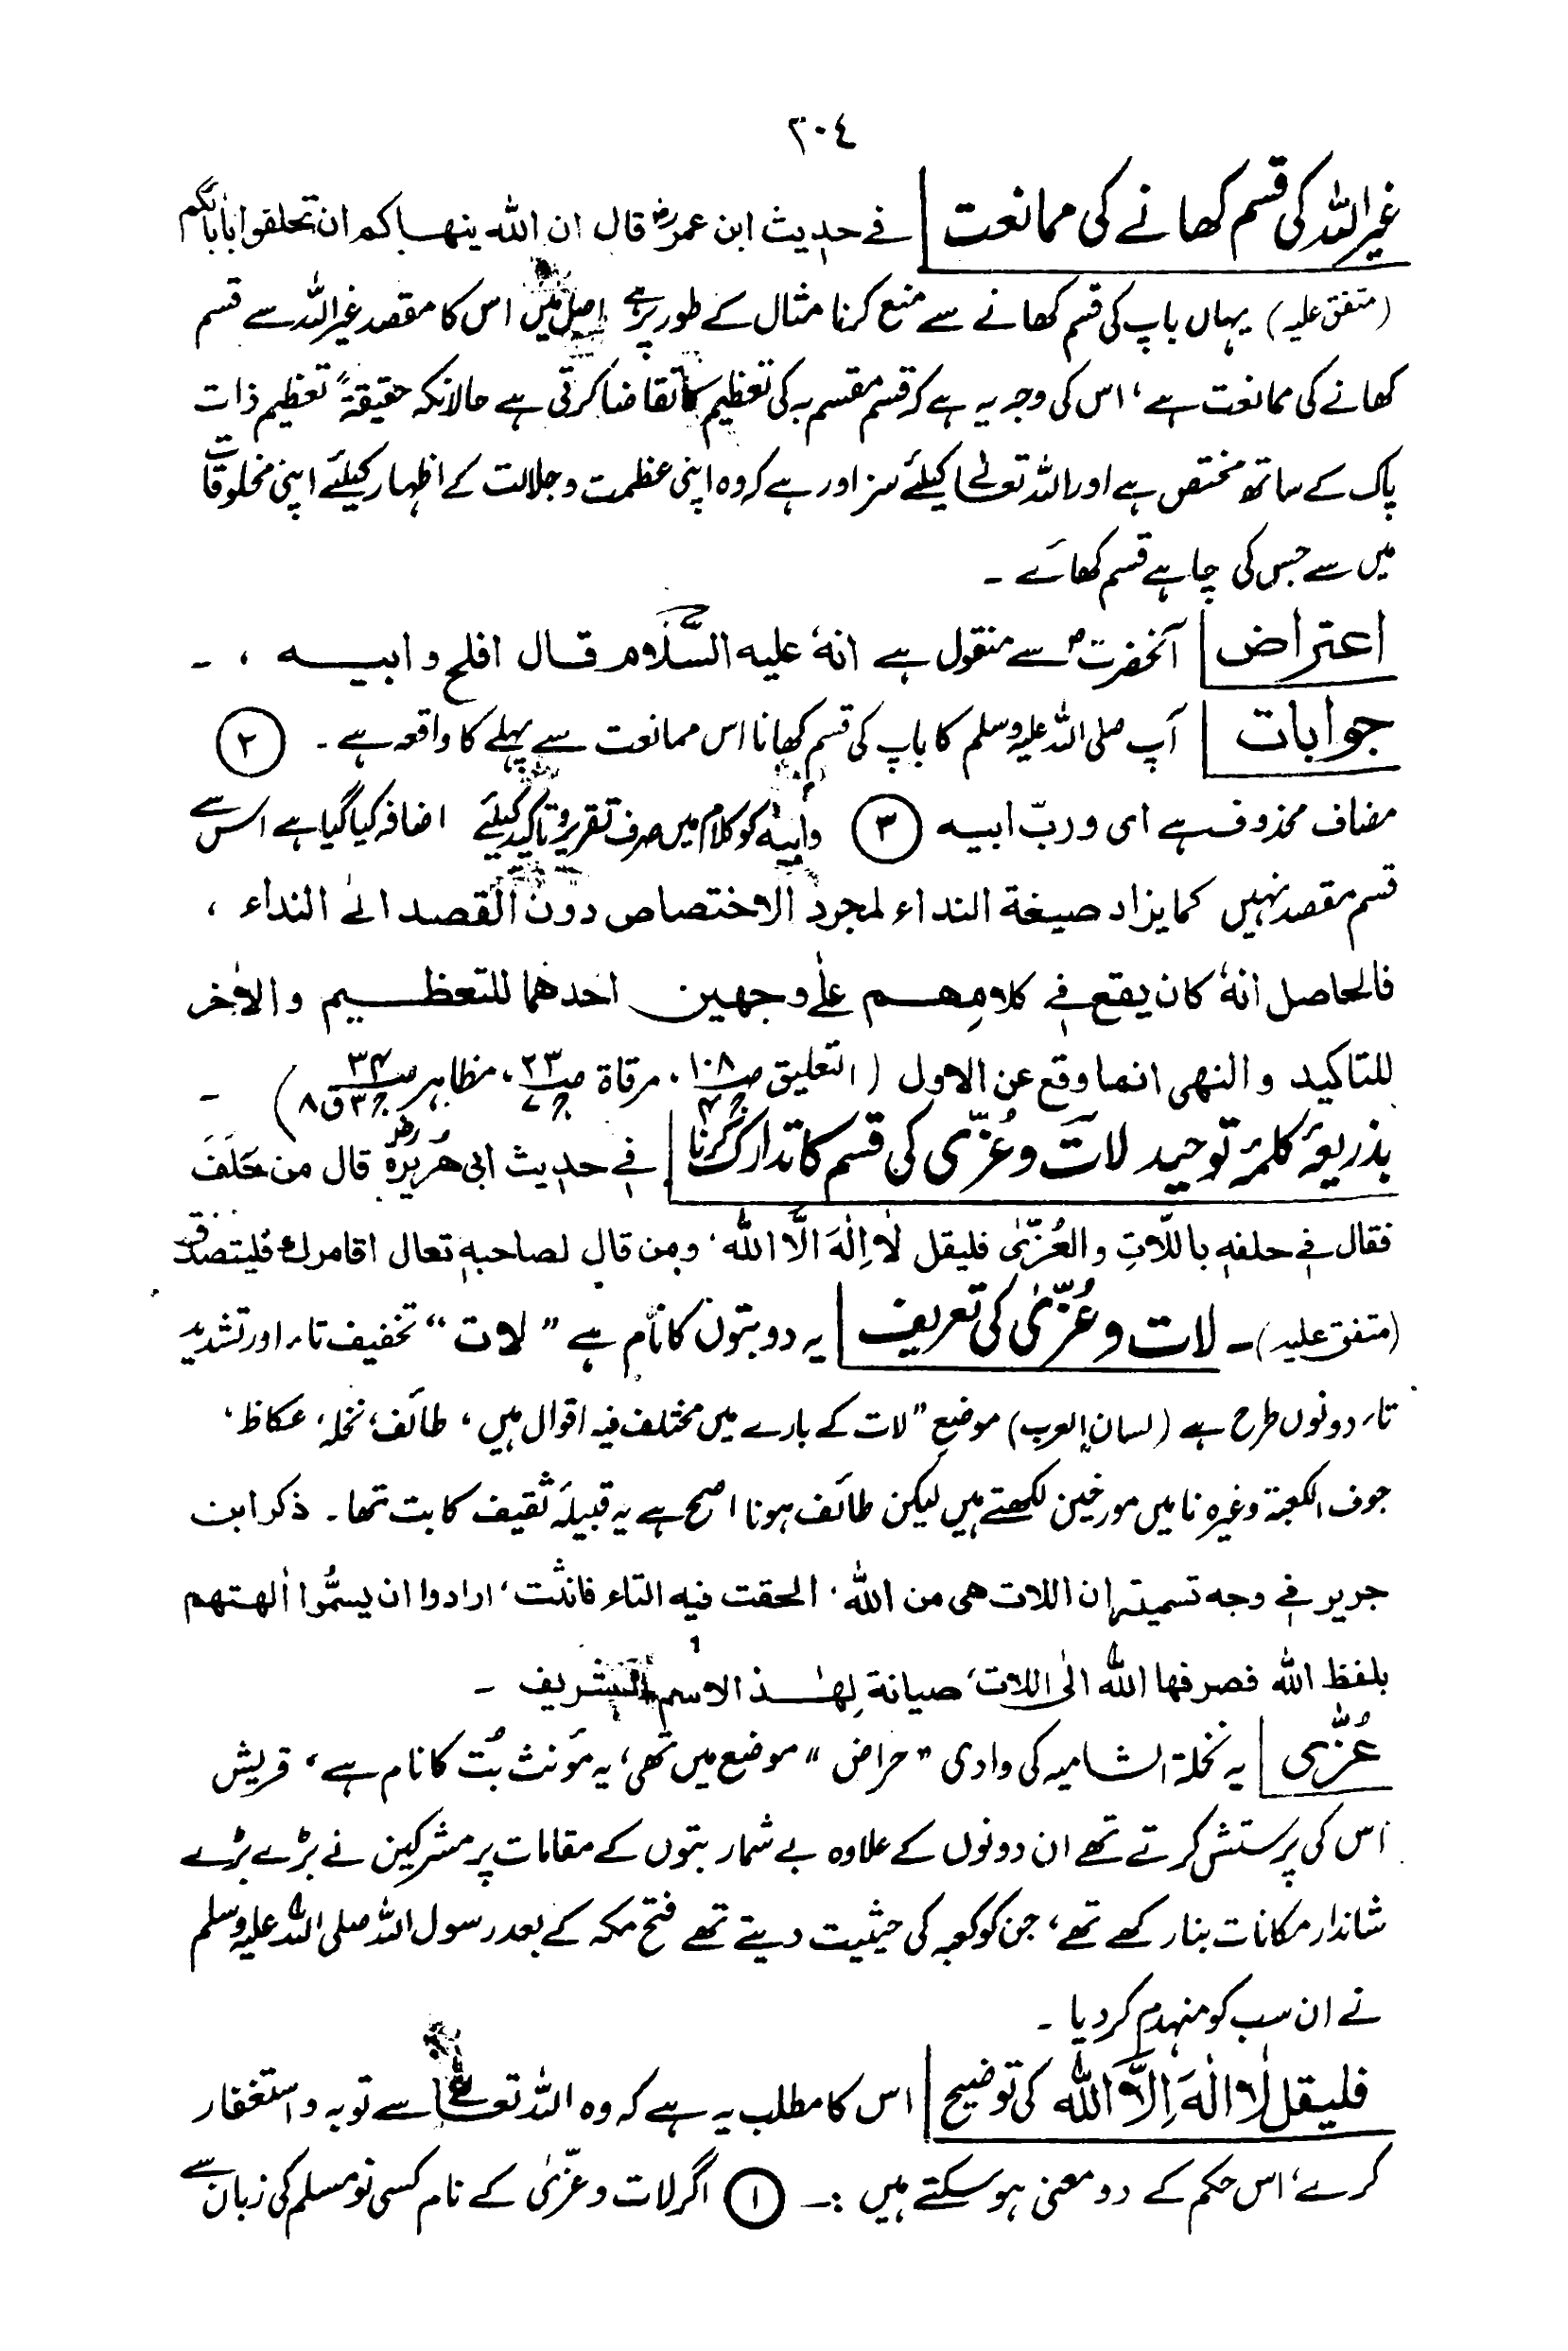 ۲۰٤
غیراللہ کی قسم کھانے کی ممانعت | فے حدیث ابن عمرؓ قال ان اللہ ینھاکم ان تحلفوا بأبائکم
(متفق علیہ) یہاں باپ کی قسم کھانے سے منع کرنا مثال کے طور پر ہے اصل میں اس کا مقصد غیراللہ سے قسم
کھانے کی ممانعت ہے، اس کی وجہ یہ ہے کہ قسم مقسم بہ کی تعظیم کا تقاضا کرتی ہے حالانکہ حقیقۃً تعظیم ذات
پاک کے ساتھ مختص ہے اور اللہ تعالےٰ کیلئے سزاور ہے کہ وہ اپنی عظمت و جلالت کے اظہار کیلئے اپنی مخلوقات
میں سے جس کی چاہے قسم کھائے ۔
اعتراض | آنحضرتؐ سے منقول ہے انہٗ علیہ السَّلام قال افلح وابیہ ، ۔
جوابات | آپ صلی اللہ علیہ وسلم کا باپ کی قسم کھانا اس ممانعت سے پہلے کا واقعہ ہے ۔ (۲)
مضاف محذوف ہے ای وربّ ابیہ (۳) وابیہٖ کو کلام میں صرف تقریر و تاکید کیلئے اضافہ کیا گیا ہے اس سے
قسم مقصد نہیں کما یزاد صیغة النداء لمجرد الاختصاص دون القصد الیٰ النداء ،
فالحاصل انہٗ کان یقع فے کلامِھم علٰے وجھین احدھما للتعظیم والاٰخر
للتاکید والنھی انما وقع عن الاول (التعلیق ص۱۰۸ ج۴، مرقاة ص۲۳ ج۷، مظاہر ص۳۴ ج۳ ق۸) ۔
بذریعۂ کلمۂ توحید لات و عُزّی کی قسم کا تدارک کرنا | فے حدیث ابی ھُریرةؓ قال من حَلَفَ
فقال فے حلفہٖ باللّاتِ والعُزّیٰ فلیقل لَا اِلٰہَ الَّا اللہ، ومن قال لصاحبہٖ تعال اقامرك فلیتصدق
(متفق علیہ) ۔ لات و عُزّیٰ کی تعریف | یہ دو بتوں کا نام ہے ”لات“ تخفیف تاء اور تشدید
تاء دونوں طرح ہے (لسان العرب) موضعِ ”لات کے بارے میں مختلف فیہ اقوال ہیں، طائف، نخلہ، عکاظ،
جوف الکعبۃ وغیرہ نامیں مورخین لکھتے ہیں لیکن طائف ہونا اصح ہے یہ قبیلۂ ثقیف کا بت تھا ۔ ذکر ابن
جریر فے وجہ تسمیتہا ان اللات ھی من اللہ، الحقت فیہ التاء فانثت، ارادوا ان یسمُّوا اٰلھتھم
بلفظ اللہ فصرفھا اللہ الیٰ اللات، صیانة لِھٰذ الاسم الشریف ۔
عُزّٰی | یہ نخلۃ الشامیہ کی وادی ”حراض“ موضع میں تھی، یہ مؤنث بُت کا نام ہے، قریش
اس کی پرستش کرتے تھے ان دونوں کے علاوہ بے شمار بتوں کے مقامات پر مشرکین نے بڑے بڑے
شاندار مکانات بنا رکھے تھے، جن کو کعبہ کی حیثیت دیتے تھے فتح مکہ کے بعد رسول اللہ صلی اللہ علیہ وسلم
نے ان سب کو منہدم کر دیا ۔
فلیقل لَا الٰہَ اِلَّا اللہ کی توضیح | اس کا مطلب یہ ہے کہ وہ اللہ تعالےٰ سے توبہ و استغفار
کرے، اس حکم کے دو معنی ہو سکتے ہیں :۔ (۱) اگر لات و عزّیٰ کے نام کسی نو مسلم کی زبان سے